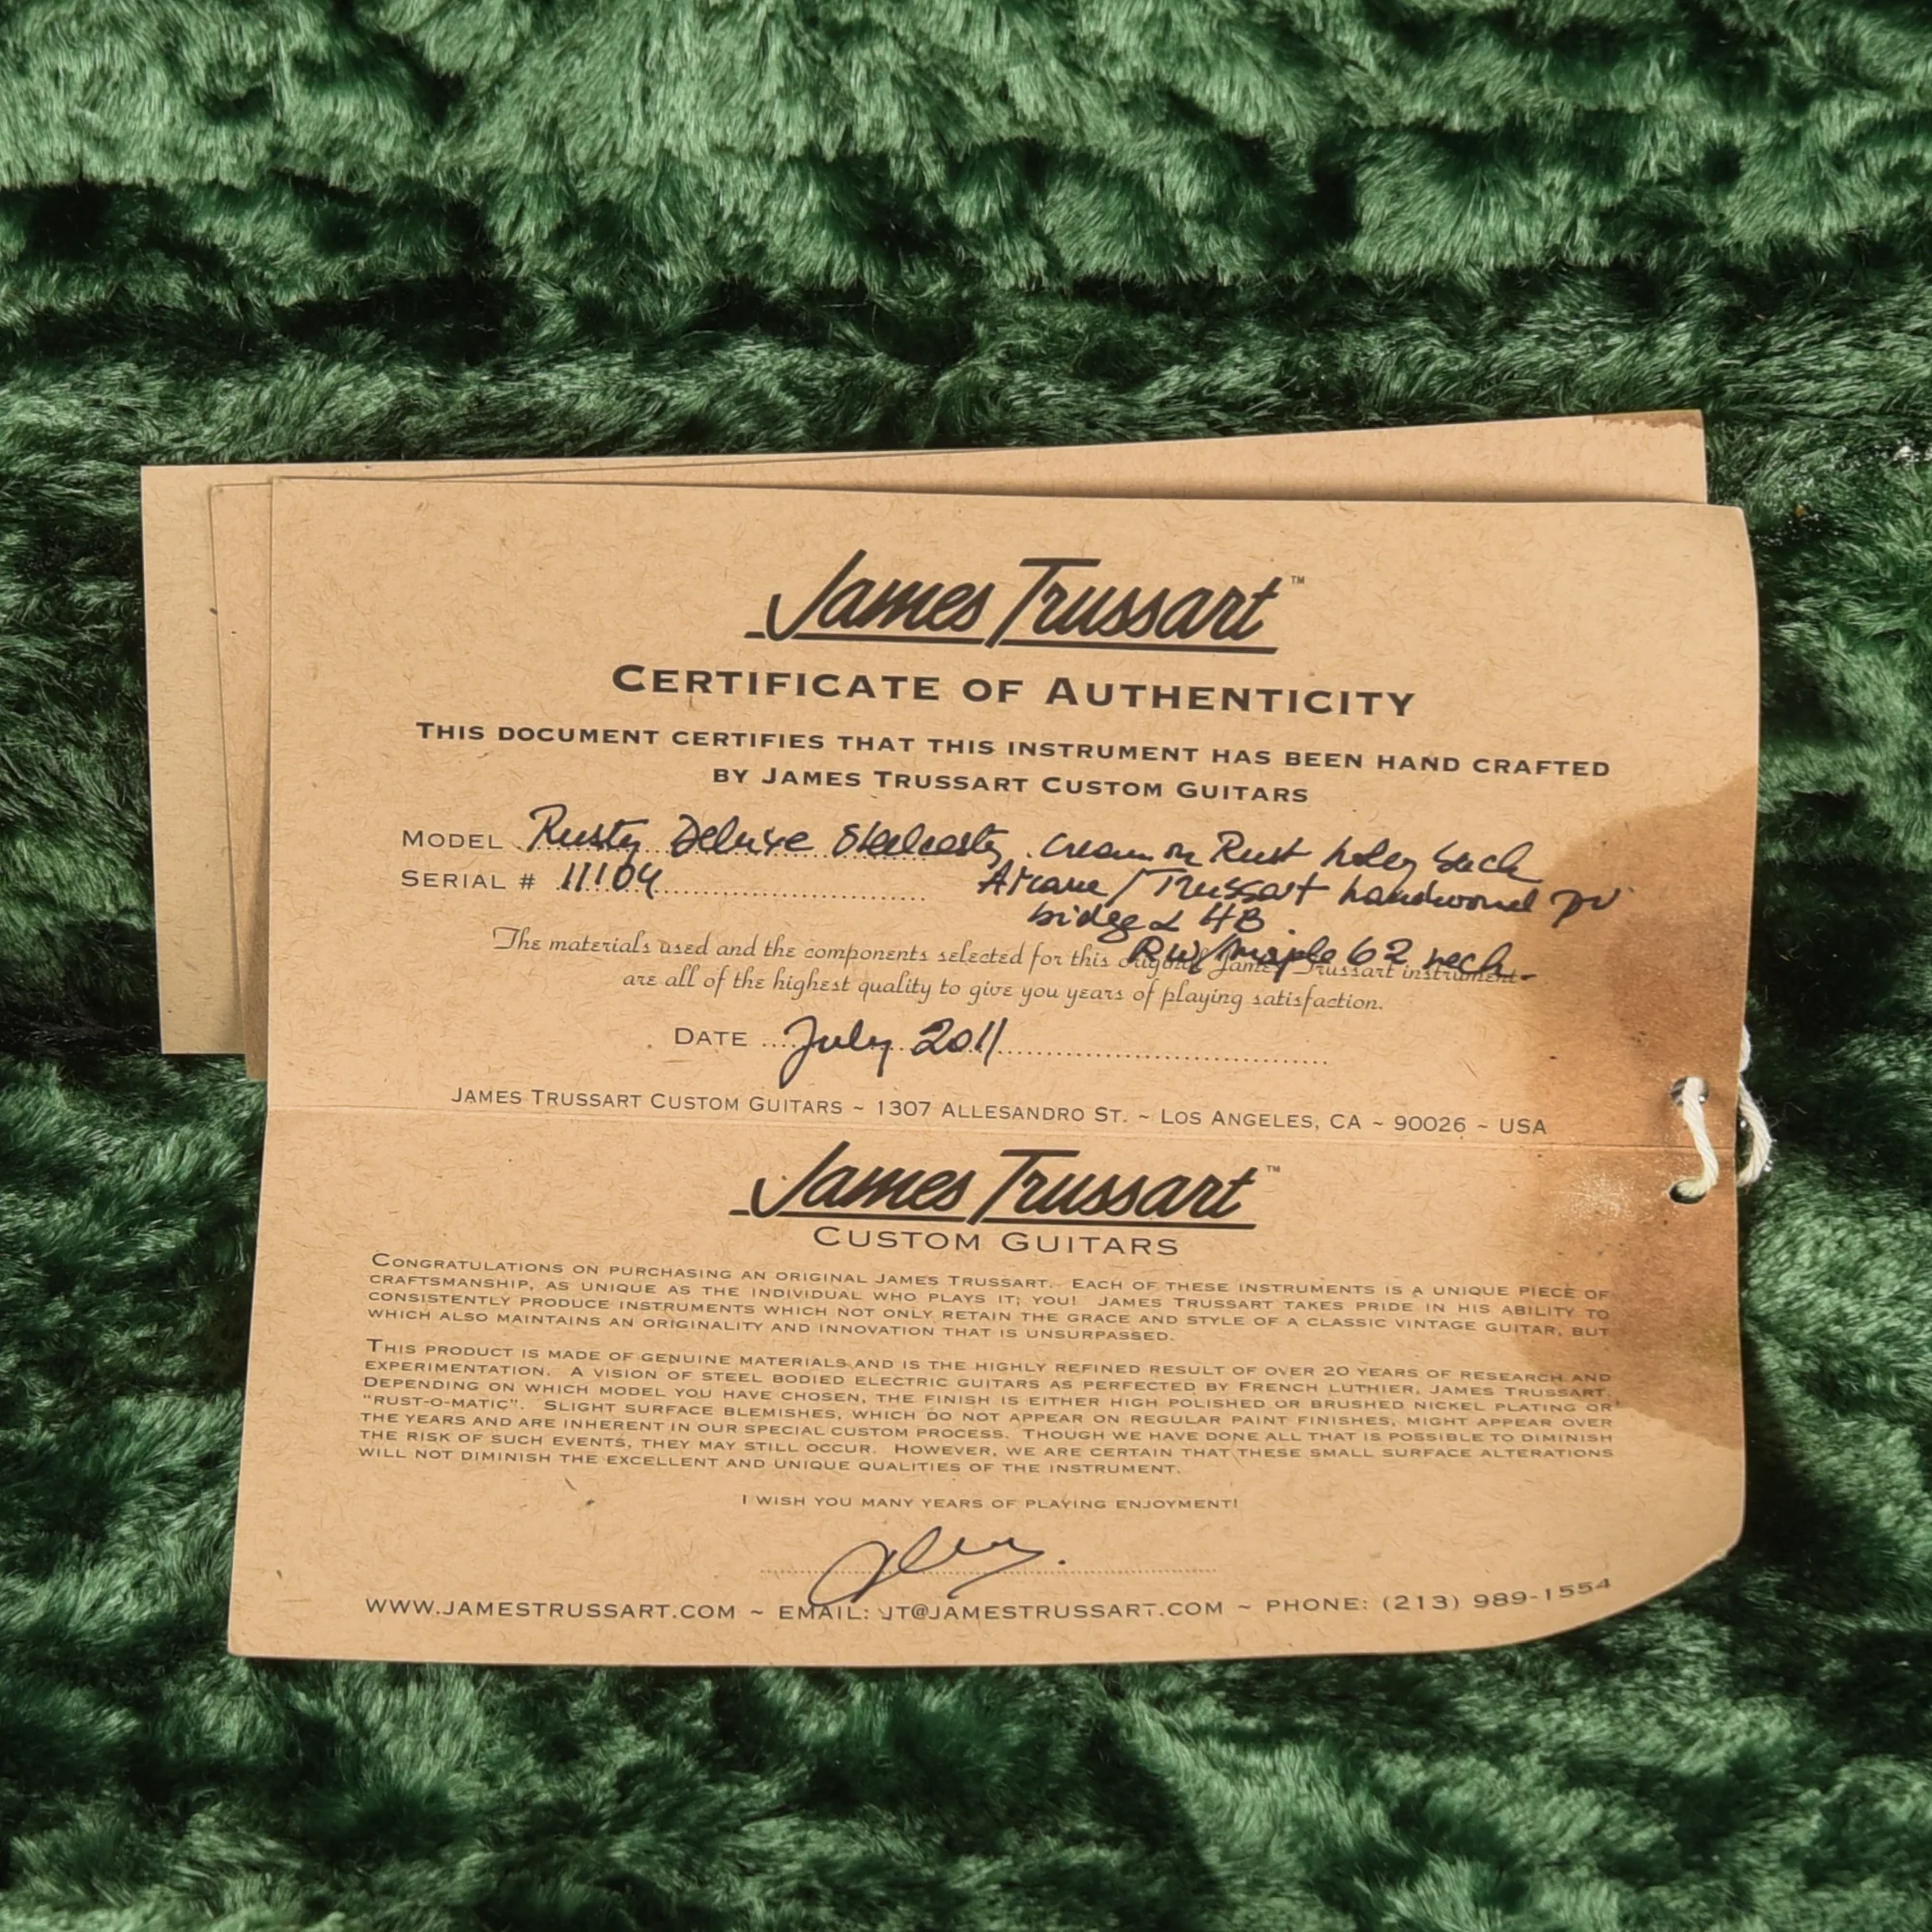 James Trussart™
CERTIFICATE OF AUTHENTICITY
THIS DOCUMENT CERTIFIES THAT THIS INSTRUMENT HAS BEEN HAND CRAFTED
BY JAMES TRUSSART CUSTOM GUITARS
MODEL Rusty Deluxe Steelcaster, Cream on Rust holey back
SERIAL # 11104 Arcane / Trussart handwound
bridge & HB
RW/maple 62 neck
The materials used and the components selected for this original James Trussart instrument
are all of the highest quality to give you years of playing satisfaction.
DATE July 2011
JAMES TRUSSART CUSTOM GUITARS ~ 1307 ALLESANDRO ST. ~ LOS ANGELES, CA ~ 90026 ~ USA
James Trussart™
CUSTOM GUITARS
CONGRATULATIONS ON PURCHASING AN ORIGINAL JAMES TRUSSART. EACH OF THESE INSTRUMENTS IS A UNIQUE PIECE OF
CRAFTSMANSHIP, AS UNIQUE AS THE INDIVIDUAL WHO PLAYS IT; YOU! JAMES TRUSSART TAKES PRIDE IN HIS ABILITY TO
CONSISTENTLY PRODUCE INSTRUMENTS WHICH NOT ONLY RETAIN THE GRACE AND STYLE OF A CLASSIC VINTAGE GUITAR, BUT
WHICH ALSO MAINTAINS AN ORIGINALITY AND INNOVATION THAT IS UNSURPASSED.
THIS PRODUCT IS MADE OF GENUINE MATERIALS AND IS THE HIGHLY REFINED RESULT OF OVER 20 YEARS OF RESEARCH AND
EXPERIMENTATION. A VISION OF STEEL BODIED ELECTRIC GUITARS AS PERFECTED BY FRENCH LUTHIER, JAMES TRUSSART.
DEPENDING ON WHICH MODEL YOU HAVE CHOSEN, THE FINISH IS EITHER HIGH POLISHED OR BRUSHED NICKEL PLATING OR
"RUST-O-MATIC". SLIGHT SURFACE BLEMISHES, WHICH DO NOT APPEAR ON REGULAR PAINT FINISHES, MIGHT APPEAR OVER
THE YEARS AND ARE INHERENT IN OUR SPECIAL CUSTOM PROCESS. THOUGH WE HAVE DONE ALL THAT IS POSSIBLE TO DIMINISH
THE RISK OF SUCH EVENTS, THEY MAY STILL OCCUR. HOWEVER, WE ARE CERTAIN THAT THESE SMALL SURFACE ALTERATIONS
WILL NOT DIMINISH THE EXCELLENT AND UNIQUE QUALITIES OF THE INSTRUMENT.
I WISH YOU MANY YEARS OF PLAYING ENJOYMENT!
WWW.JAMESTRUSSART.COM ~ EMAIL: JT@JAMESTRUSSART.COM ~ PHONE: (213) 989-1554